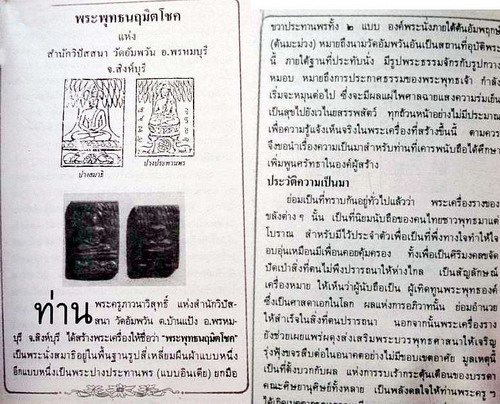 พระพุทธนฤมิตโชค
แห่ง
สำนักวิปัสสนา วัดอัมพวัน อ.พรหมบุรี
จ.สิงห์บุรี
ปางสมาธิ
ปางประทานพร
ท่าน พระครูภาวนาวิสุทธิ์ แห่งสำนักวิปัส-
สนา วัดอัมพวัน ต.บ้านแป้ง อ.พรหม-
บุรี จ.สิงห์บุรี ได้สร้างพระเครื่องให้ชื่อว่า "พระพุทธนฤมิตโชค"
เป็นพระนั่งสมาธิอยู่ในพื้นฐานรูปสี่เหลี่ยมผืนผ้าแบบหนึ่ง
อีกแบบหนึ่งเป็นพระปางประทานพร (แบบอินเดีย) ยกมือ
ขวาประทานพรทั้ง ๒ แบบ องค์พระนั่งภายใต้ต้นอัมพฤกษ์
(ต้นมะม่วง) หมายถึงนามวัดอัมพวันอันเป็นสถานที่อุบัติพระ
นี้ ภายใต้ฐานที่ประทับนั่ง มีรูปพระธรรมจักรกับรูปกวาง
หมอบ หมายถึงการประกาศธรรมของพระพุทธเจ้า กำลัง
เริ่มจะหมุนต่อไป ซึ่งจะมีผลแผ่ไพศาลฉายแสงความร่มเย็น
เป็นสุขไปยังเวไนยสรรพสัตว์ ทุกถ้วนหน้าอย่างไม่มีประมาณ
เพื่อความรู้แจ้งเห็นจริงในพระเครื่องที่สร้างขึ้นนี้ ตามควร
จึงขอนำเรื่องความเป็นมาสำหรับท่านที่เคารพนับถือได้ศึกษา
เพิ่มพูนศรัทธาในองค์ผู้สร้าง
ประวัติความเป็นมา
ย่อมเป็นที่ทราบกันอยู่ทั่วไปแล้วว่า พระเครื่องรางของ
ขลังต่าง ๆ นั้น เป็นที่นิยมนับถือของคนไทยชาวพุทธมาแต่
โบราณ สำหรับมีไว้ประจำตัวเพื่อเป็นที่พึ่งทางใจทำให้ใจ
อบอุ่นเหมือนมีเพื่อนคอยคุ้มครอง ทั้งเพื่อเป็นศิริมงคลขจัด
ปัดเป่าสิ่งที่ตนไม่พึงปรารถนาให้ห่างไกล เป็นสัญลักษณ์
เครื่องหมาย ให้เห็นว่าผู้นับถือเป็น ผู้เทิดทูนพระพุทธองค์
ซึ่งเป็นศาสดาเอกในโลก ผลแห่งการอภิวาทนั้น ย่อมอำนวย
ให้สำเร็จในสิ่งที่ตนปรารถนา นอกจากนั้นพระเครื่องราง
ยังช่วยเผยแพร่ผดุงส่งเสริมพระบวรพุทธศาสนาให้เจริญ
รุ่งฟุ้งขจรสืบต่อในอนาคตอย่างไม่มีขอบเขตอาศัย มูลเหตุนี้
เป็นที่ตั้งบวกกับผล แห่งการรบเร้ากระตุ้นเตือนของบรรดา
คณะศิษยานุศิษย์ทั้งหลาย เป็นพลังดลใจให้ท่านพระครู ฯ